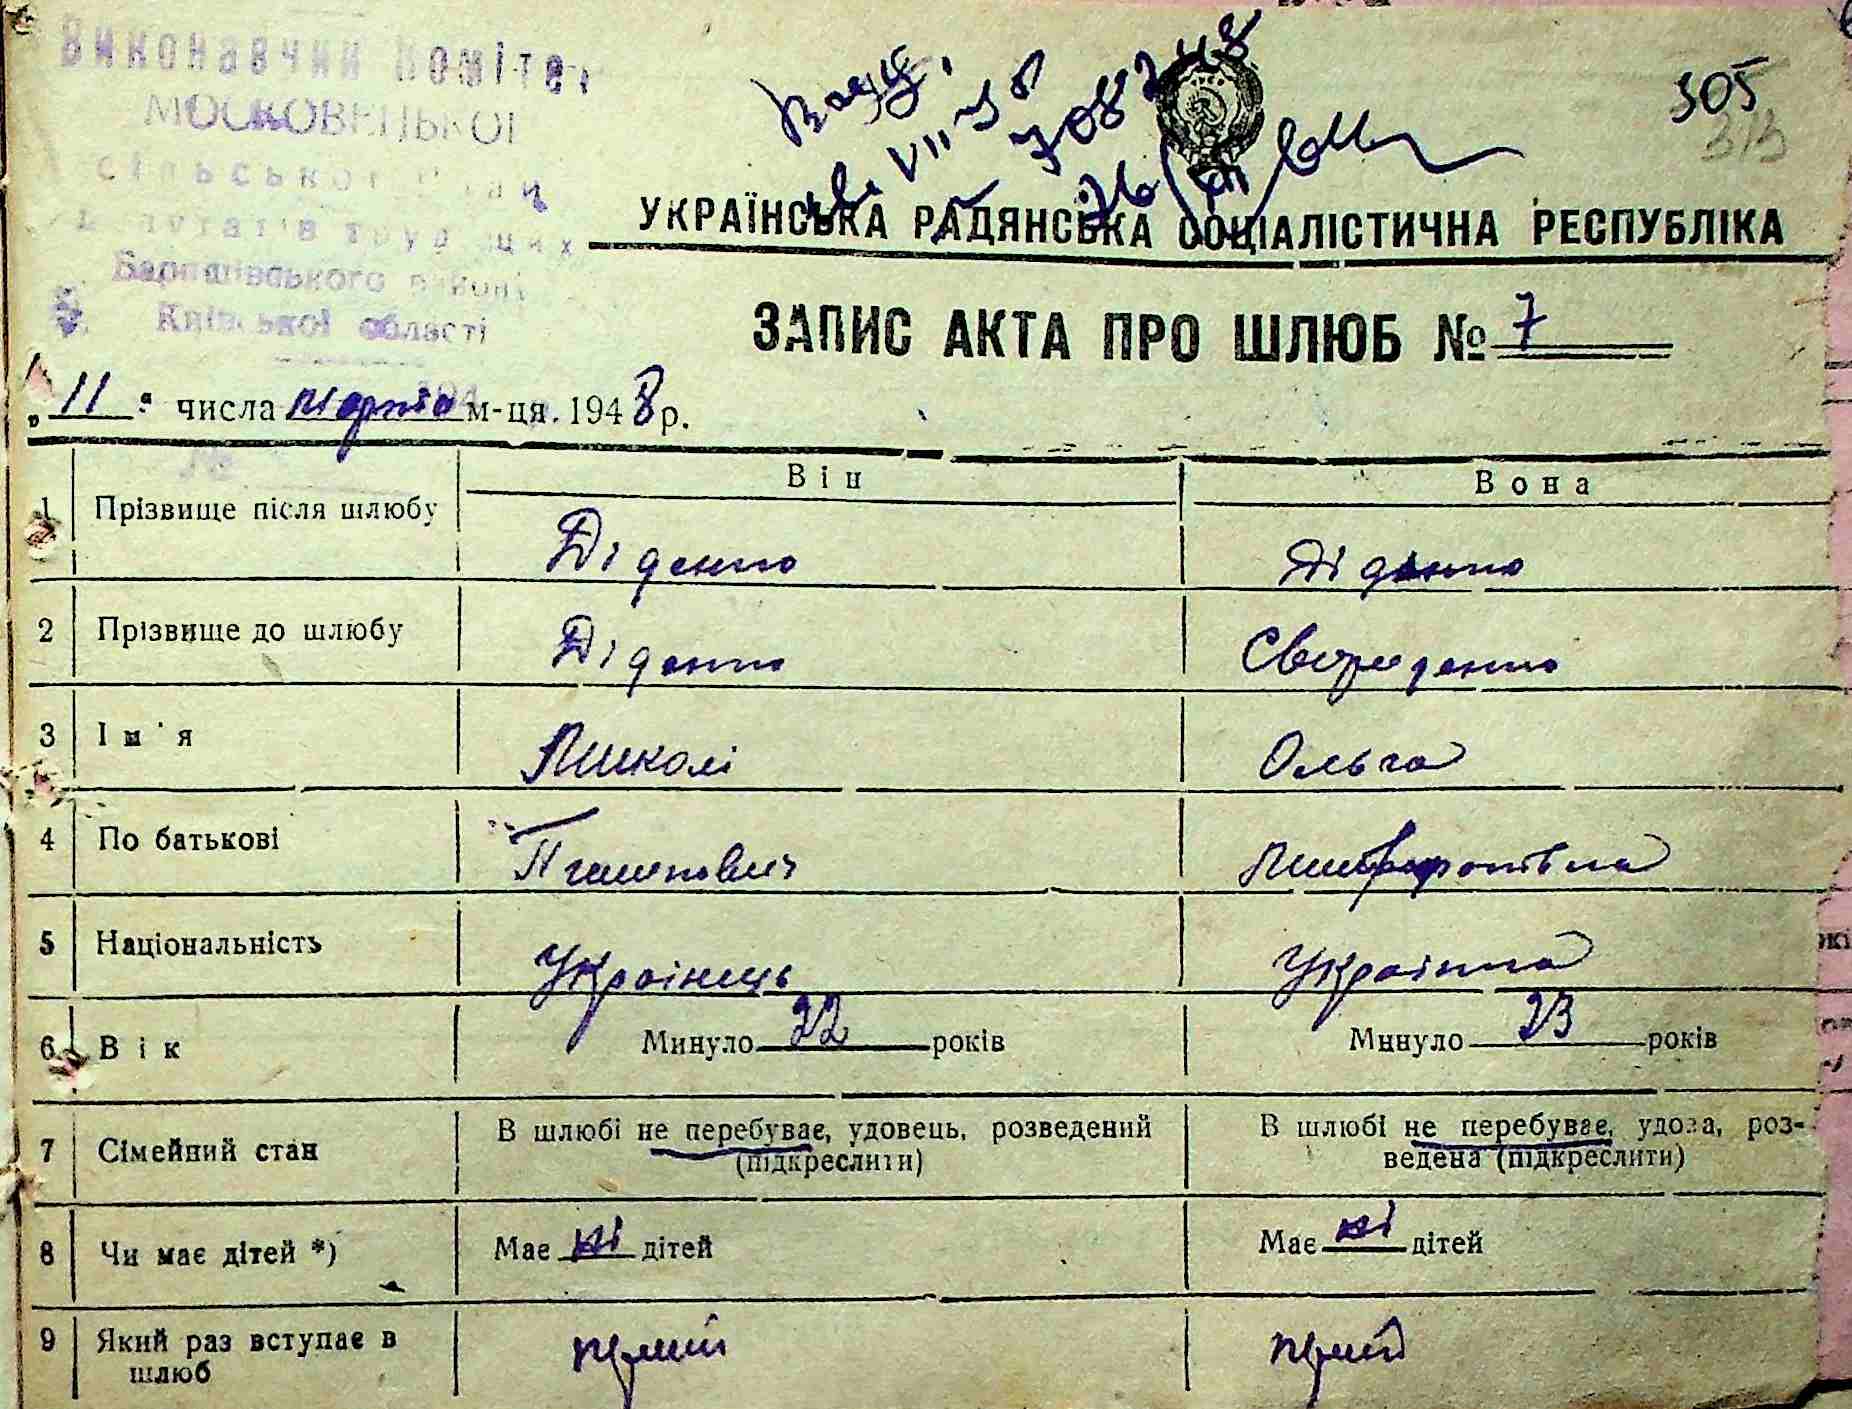 Виконавчий Комітет
МОСКОВЕЦЬКОЇ
сільської Ради
депутатів трудящих
Баришівського району
Київської області
305
313
УКРАЇНСЬКА РАДЯНСЬКА СОЦІАЛІСТИЧНА РЕСПУБЛІКА
ЗАПИС АКТА ПРО ШЛЮБ № 7
„11“ числа марта м-ця. 1948 р.
Він Вона
1 Прізвище після шлюбу Діденко Діденко
2 Прізвище до шлюбу Діденко Свириденко
3 Ім'я Микола Ольга
4 По батькові Митрофанівна
5 Національність Українець Українка
6 Вік Минуло 22 років Минуло 23 років
7 Сімейний стан В шлюбі не перебуває, удовець, розведений (підкреслити) В шлюбі не перебуває, удова, роз-
ведена (підкреслити)
8 Чи має дітей *) Має ні дітей Має ні дітей
9 Який раз вступає в шлюб перший перший